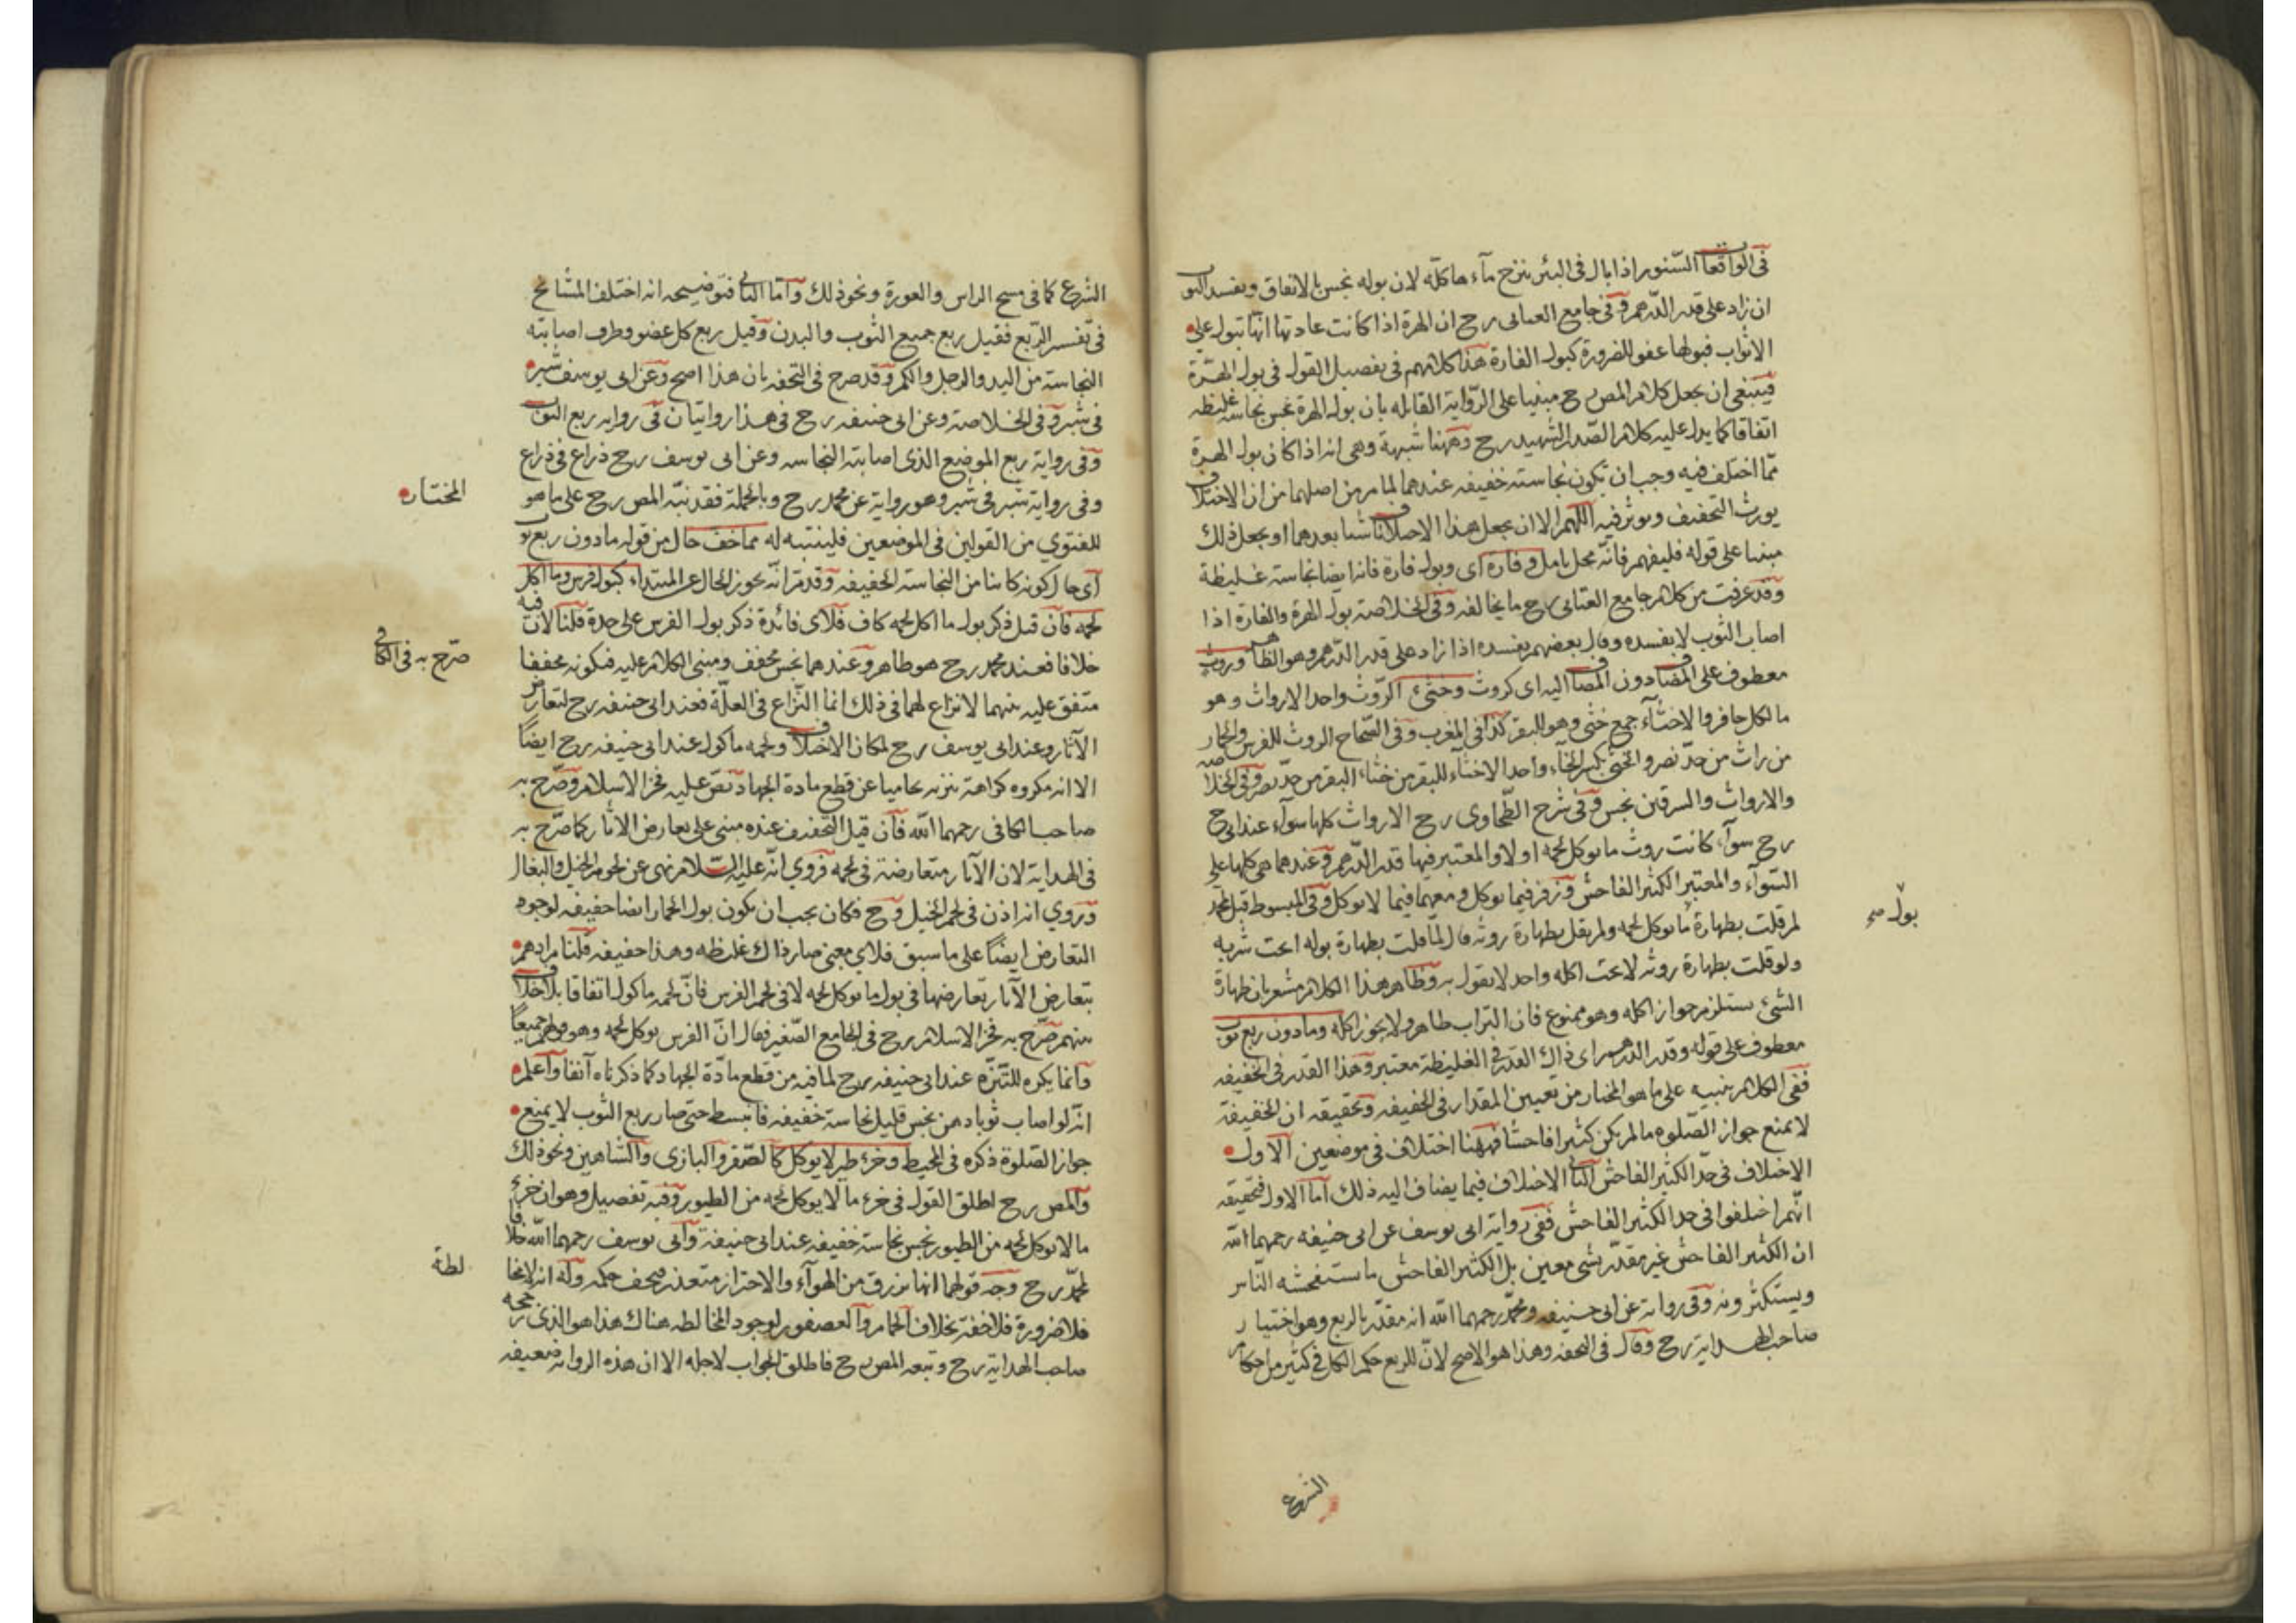 في الواقعات السنور اذا بال في البئر ينزح مآءها كله لان بوله نجس بالاتفاق ويفسد الثوب
ان زاد على قدر الدرهم وفي جامع العتابى رح ان الهرة اذا كانت عادتها انها تبول على
الاثواب فبولها عفو للضرورة كبول الفارة هذا كلامهم في تفصيل القول في بول الهرة
فينبغي ان يجعل كلام المص رح مبنيا على الرواية القايله بان بول الهرة نجس نجاسة غليظه
اتفاقا كما يدل عليه كلام الصدر الشهيد رح وههنا شبهة وهي انه اذا كان بول الهرة
مما اختلف فيه وجب ان تكون نجاسته خفيفه عندهما لما مر من اصلهما من ان الاختلاف
يورث التخفيف ويوثر فيه اللهم الا ان يجعل هذا الاختلاف ناشيا بعدهما او يجعل ذلك
مبنيا على قوله فليفهم فانه محل تامل وفارة اى وبول فارة فانه ايضا نجاسته غليظة
وقد عرفت من كلام جامع العتابى رح ما يخالفه وفي الخلاصة بول الهرة والفارة اذا
اصاب الثوب لا يفسده وقال بعضهم يفسده اذا زاد على قدر الدرهم وهو الظاهر وروث
معطوف على المضاف دون المضاف اليه اى كروث وخثئ الروث واحد الارواث وهو
ما لكل حافر والاخثآء جمع خثى وهو للبقر كذا في المغرب وفي الصحاح الروث للفرس والحمار
من راث من حد نصر والخثى بكسر الخآء واحد الاخثآء للبقر من خثاء البقر من حد نصر وفي الخلاصه
والارواث والسرقين نجس وفي شرح الطحاوى رح الارواث كلها سوآء عند ابى ح
رح سوآء كانت روث ما يوكل لحمه اولا والمعتبر فيها قدر الدرهم وعندهما هي كلها على
السوآء والمعتبر الكثير الفاحش وزفر فيما يوكل ومعهما فيما لا يوكل وفي المبسوط قيل لمحمد
لم قلت بطهارة ما يوكل لحمه ولم يقل بطهارة روثه قال لما قلت بطهارة بوله ابحت شربه
بول صح
ولو قلت بطهارة روثه لابحت اكله واحد لا يقول به وظاهر هذا الكلام مشعر بان طهارة
الشئ يستلزم جواز اكله وهو ممنوع فان التراب طاهر ولا يجوز اكله وما دون ربع ثوب
معطوف على قوله وقدر الدرهم اى ذاك القدر في الغليظة معتبر وهذا القدر في الخفيفه
ففي الكلام تنبيه على ما هو المختار من تعيين المقدار في الخفيفه وتحقيقه ان الخفيفة
لا يمنع جواز الصلوه ما لم يكن كثيرا فاحشا فههنا اختلاف في موضعين الاول
الاختلاف في حد الكثير الفاحش الثانى الاختلاف فيما يضاف اليه ذلك اما الاول فتحقيقه
انهم اختلفوا في حد الكثير الفاحش ففي رواية ابى يوسف عن ابى حنيفه رحمهما الله
ان الكثير الفاحش غير مقدر بشئ معين بل الكثير الفاحش ما يستفحشه الناس
ويستكثرونه وفي رواية عن ابى حنيفه ومحمد رحمهما الله انه مقدر بالربع وهو اختيار
صاحب الهداية رح وقال في التحفه وهذا هو الاصح لان للربع حكم الكل في كثير من احكام
الشرع
الشرع كما في مسح الراس والعورة ونحو ذلك واما الثانى فتوضيحه انه اختلف المشايخ
في تفسير الربع فقيل ربع جميع الثوب والبدن وقيل ربع كل عضو وطرف اصابته
النجاسته من اليد والرجل والكم وقد صرح في التحفه بان هذا اصح وعن ابى يوسف شبر
في شبر وفي الخلاصة وعن ابى حنيفه رح في هذا روايتان في روايه ربع الثوب
وفي رواية ربع الموضع الذى اصابته النجاسه وعن ابى يوسف رح ذراع في ذراع
وفي رواية شبر في شبر وهو رواية عن محمد رح وبالجملة فقد نبه المص رح على ما هو
المختار
للفتوي من القولين في الموضعين فليتنبه له مما خف حال من قوله مادون ربع ثوب
اى حال كونه كائنا من النجاسته الخفيفه وقد مر انه يجوز الحال عن المبتداء كبول فرس وما اكل
لحمه فان قيل ذكر بول ما اكل لحمه كاف فلاى فائدة ذكر بول الفرس على حدة قلنا لان فيه
خلافا فعند محمد رح هو طاهر وعندهما نجس مخفف ومبنى الكلام عليه فيكونه مخففا
صرح به في الكافى
متفق عليه بينهما لا نزاع لهما في ذلك انما النزاع في العلة فعند ابى حنيفه رح لتعارض
الآثار وعند ابى يوسف رح لمكان الاختلاف ولحمه ماكول عند ابى حنيفه رح ايضا
الا انه مكروه كراهة تنزيه تحاميا عن قطع مادة الجهاد نص عليه فخر الاسلام وصرح به
صاحب الكافى رحمهما الله فان قيل التخفيف عنده مبنى على تعارض الاثار كما صرح به
في الهداية لان الآثار متعارضة في لحمه فروي انه عليه السلام نهى عن لحوم الخيل والبغال
وروي انه اذن في لحم الخيل وح فكان يجب ان يكون بول الحمار ايضا خفيفه لوجود
التعارض ايضا على ما سبق فلاي معنى صار ذاك غليظه وهذا خفيفه قلنا مرادهم
بتعارض الآثار تعارضها في بول ما يوكل لحمه لا في لحم الفرس فان لحمه ماكول اتفاقا بلا اختلاف
بينهم صرح به فخر الاسلام رح في الجامع الصغير فقال ان الفرس يوكل لحمه وهو قولهم جميعا
وانما يكره للتنزه عند ابى حنيفه رح لما فيه من قطع مادة الجهاد كما ذكرناه آنفا واعلم
انه لو اصاب ثوبا دهن نجس قليل نجاسته خفيفه فانبسط حتى صار ربع الثوب لا يمنع
جواز الصلوة ذكره في المحيط وخرء طير لا يوكل كالصقر والبازى والشاهين ونحو ذلك
والمص رح اطلق القول في خرء ما لا يوكل لحمه من الطيور وفيه تفصيل وهو ان خرء
ما لا يوكل لحمه من الطيور نجس نجاسته خفيفه عند ابى حنيفة وابى يوسف رحمهما الله خلافا
لمحمد رح وجه قولهما انها تزرق من الهوآء والاحتراز متعذر فيخف حكمه وله انه لا مخا
لطة
فلا ضرورة فلا خفة بخلاف الحمام والعصفور لوجود المخالطه هناك هذا هو الذى رجحه
صاحب الهداية رح وتبعه المص رح فاطلق الجواب لاجله الا ان هذه الروايه ضعيفه